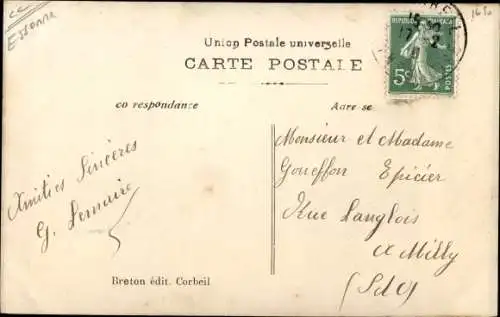 Essonne
Union Postale universelle
CARTE POSTALE
co respondance
Adresse
REPUBLIQUE FRANÇAISE
5c
POSTES
15
17 2
Amitiés Sincères
G. Lemaire
Monsieur et Madame
Goueffon Epicier
Rue Langlois
a Milly
(S&O)
Breton édit. Corbeil